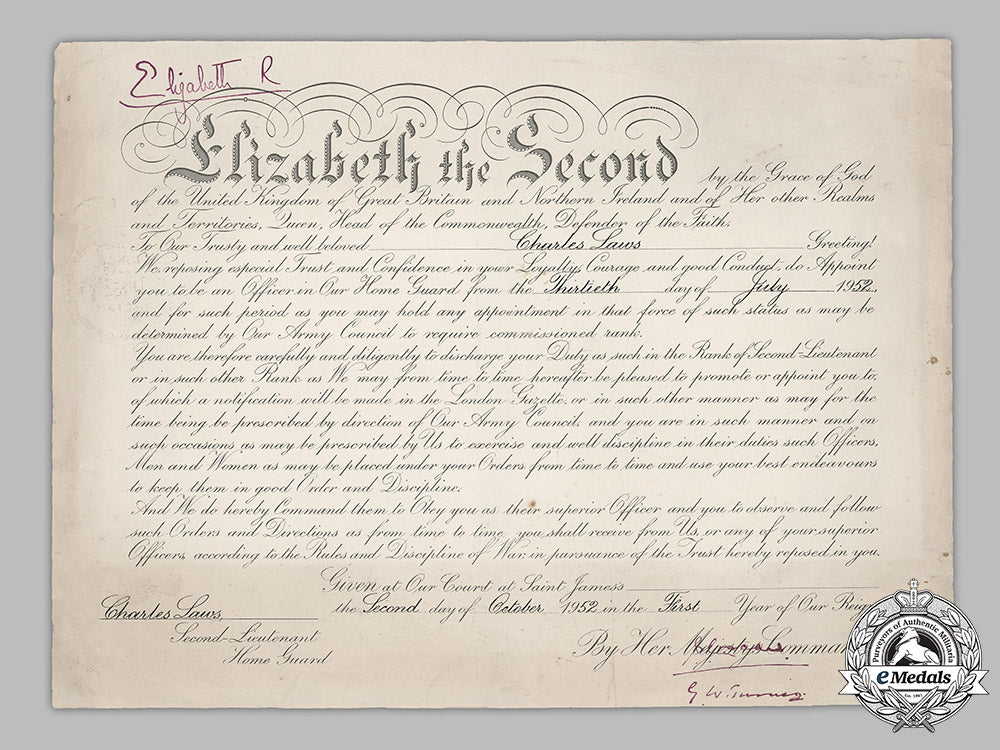 Elizabeth R
Elizabeth the Second by the Grace of God
of the United Kingdom of Great Britain and Northern Ireland and of Her other Realms
and Territories, Queen, Head of the Commonwealth, Defender of the Faith.
To Our Trusty and well beloved Charles Laws Greeting!
We, reposing especial Trust and Confidence in your Loyalty, Courage and good Conduct, do Appoint
you to be an Officer in Our Home Guard from the Thirtieth day of July 1952,
and for such period as you may hold any appointment in that force of such status as may be
determined by Our Army Council to require commissioned rank.
You are therefore carefully and diligently to discharge your Duty as such in the Rank of Second-Lieutenant
or in such other Rank as We may from time to time hereafter be pleased to promote or appoint you to,
of which a notification will be made in the London Gazette, or in such other manner as may for the
time being be prescribed by direction of Our Army Council, and you are in such manner and on
such occasions as may be prescribed by Us to exercise and well discipline in their duties such Officers,
Men and Women as may be placed under your Orders from time to time and use your best endeavours
to keep them in good Order and Discipline.
And We do hereby Command them to Obey you as their superior Officer and you to observe and follow
such Orders and Directions as from time to time you shall receive from Us, or any of your superior
Officers, according to the Rules and Discipline of War, in pursuance of the Trust hereby reposed in you.
Given at Our Court at Saint James's
the Second day of October 1952 in the First Year of Our Reign
Charles Laws,
Second-Lieutenant
Home Guard
By Her Majesty's Comman
G W. Turner
Purveyors of Authentic Militaria
eMedals